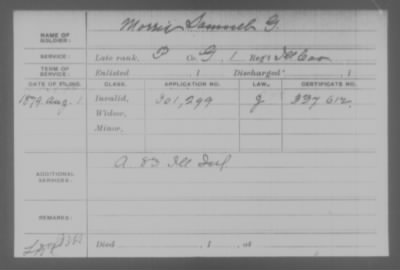 NAME OF SOLDIER: Morris Samuel G.
SERVICE: Late rank, P Co. G, 1 Reg't Ill Cav
TERM OF SERVICE: Enlisted , 1 Discharged , 1
DATE OF FILING. CLASS. APPLICATION NO. LAW. CERTIFICATE NO.
1879 Aug. 1 Invalid, 301,299 G 337 612
Widow,
Minor,
ADDITIONAL SERVICES: A 83 Ill Inf.
REMARKS:
Died , 1 , at